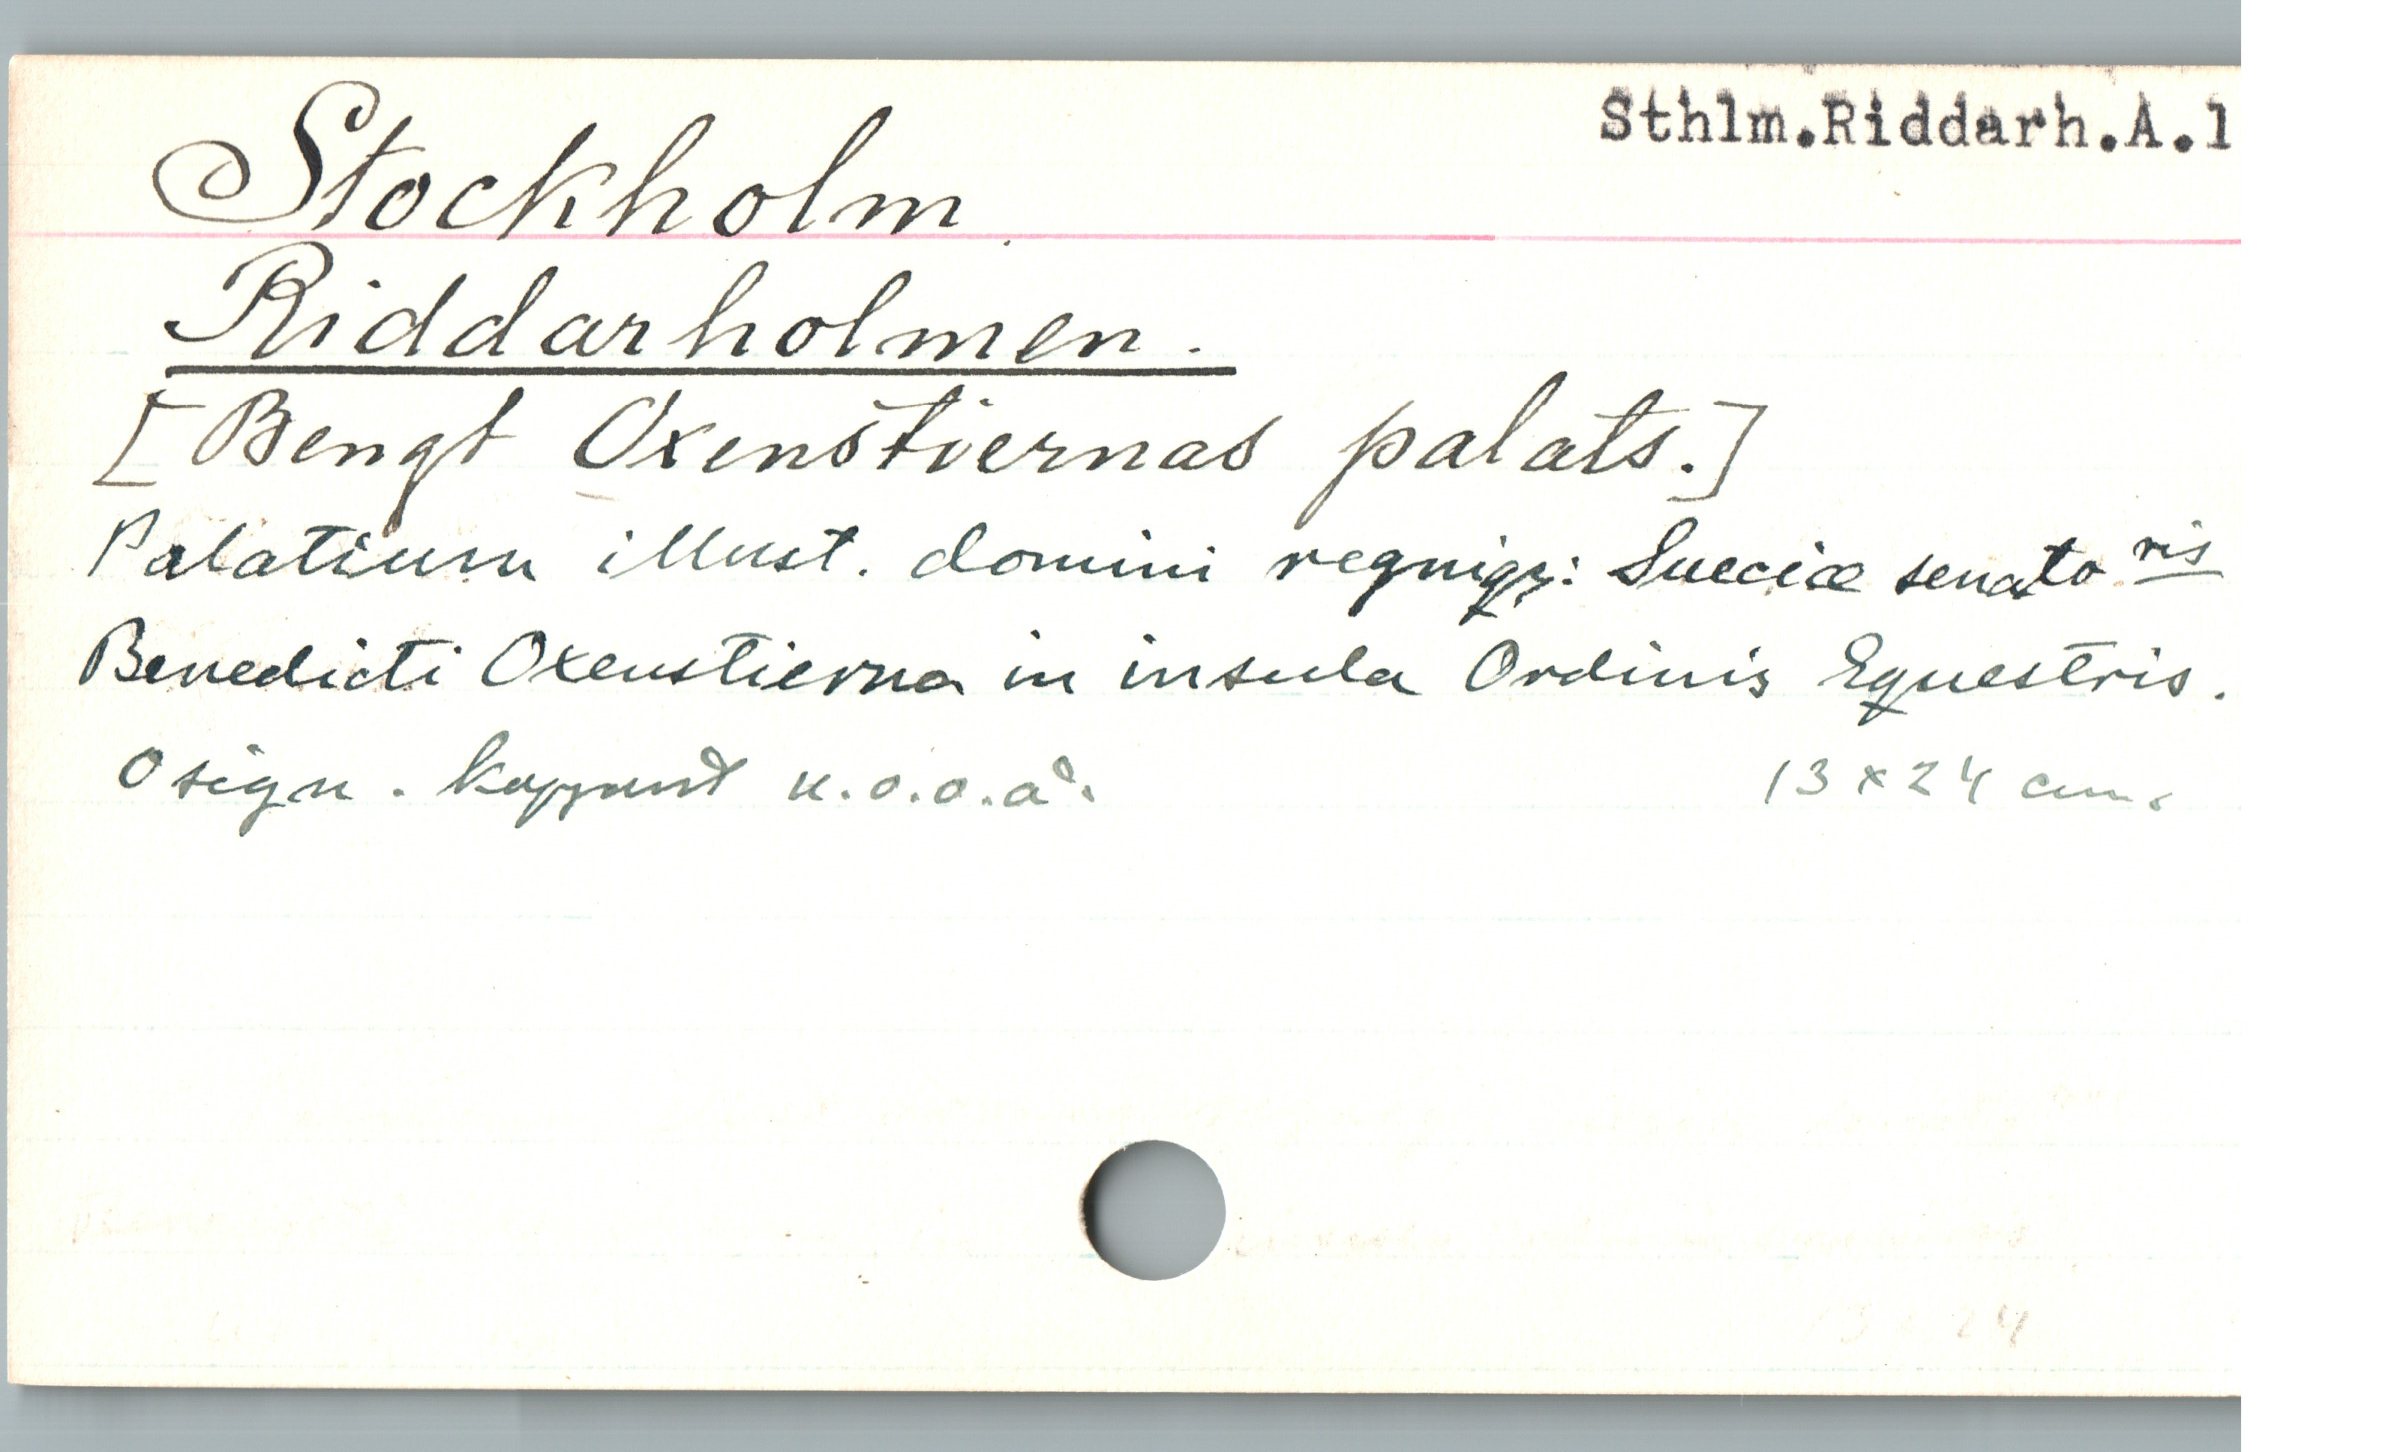 Sthlm.Riddarh.A.1
Stockholm
Riddarholmen.
[Bengt Oxenstiernas palats.]
Palatium illust. domini regniqȝ: Sueciæ senatoris
Benedicti Oxenstierna in insula Ordinis Equestris.
Osign. kopparst u.o.o.å. 13 x 24 cm.